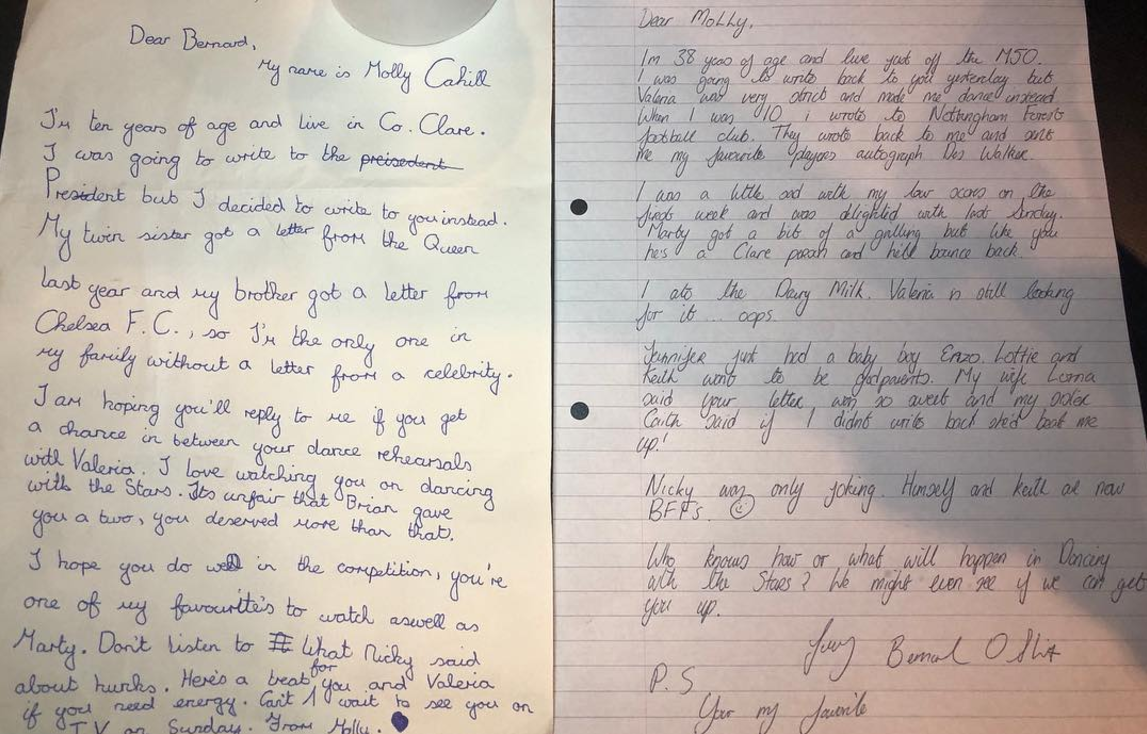 Dear Bernard,
My name is Molly Cahill
I'm ten years of age and live in Co. Clare.
I was going to write to the preisedent
President but I decided to write to you instead.
My twin sister got a letter from the Queen
last year and my brother got a letter from
Chelsea F.C., so I'm the only one in
my family without a letter from a celebrity.
I am hoping you'll reply to me if you get
a chance in between your dance rehearsals
with Valeria. I love watching you on dancing
with the Stars. Its unfair that Brian gave
you a two, you deserved more than that.
I hope you do well in the competition, you're
one of my favourite's to watch aswell as
Marty. Don't listen to what Nicky said
about hunks. Here's a treat for you and Valeria
if you need energy. Can't wait to see you on
T.V on Sunday. From Molly.
Dear Molly,
Im 38 years of age and live just off the M50.
I was going to write back to you yesterday but
Valeria was very strict and made me dance instead.
When I was 10 i wrote to Nottingham Forest
football club. They wrote back to me and sent
me my favourite players autograph Des Walker.
I was a little sad with my low scores on the
first week and was delighted with last Sunday.
Marty got a bit of a grilling but like you
he's a Clare person and he'll bounce back.
I ate the Dairy Milk. Valeria is still looking
for it... oops.
Jennifer just had a baby boy Enzo. Lottie and
Keith want to be godparents. My wife Lorna
said your letter was so sweet and my sister
said if I didnt write back she'd beat me
up!
Nicky was only joking. Himself and Keith are now
BFFs.
Who knows how or what will happen in Dancing
with the Stars? We might even see if we can get
you up.
Bernard O Shea
P.S
Your my favourite